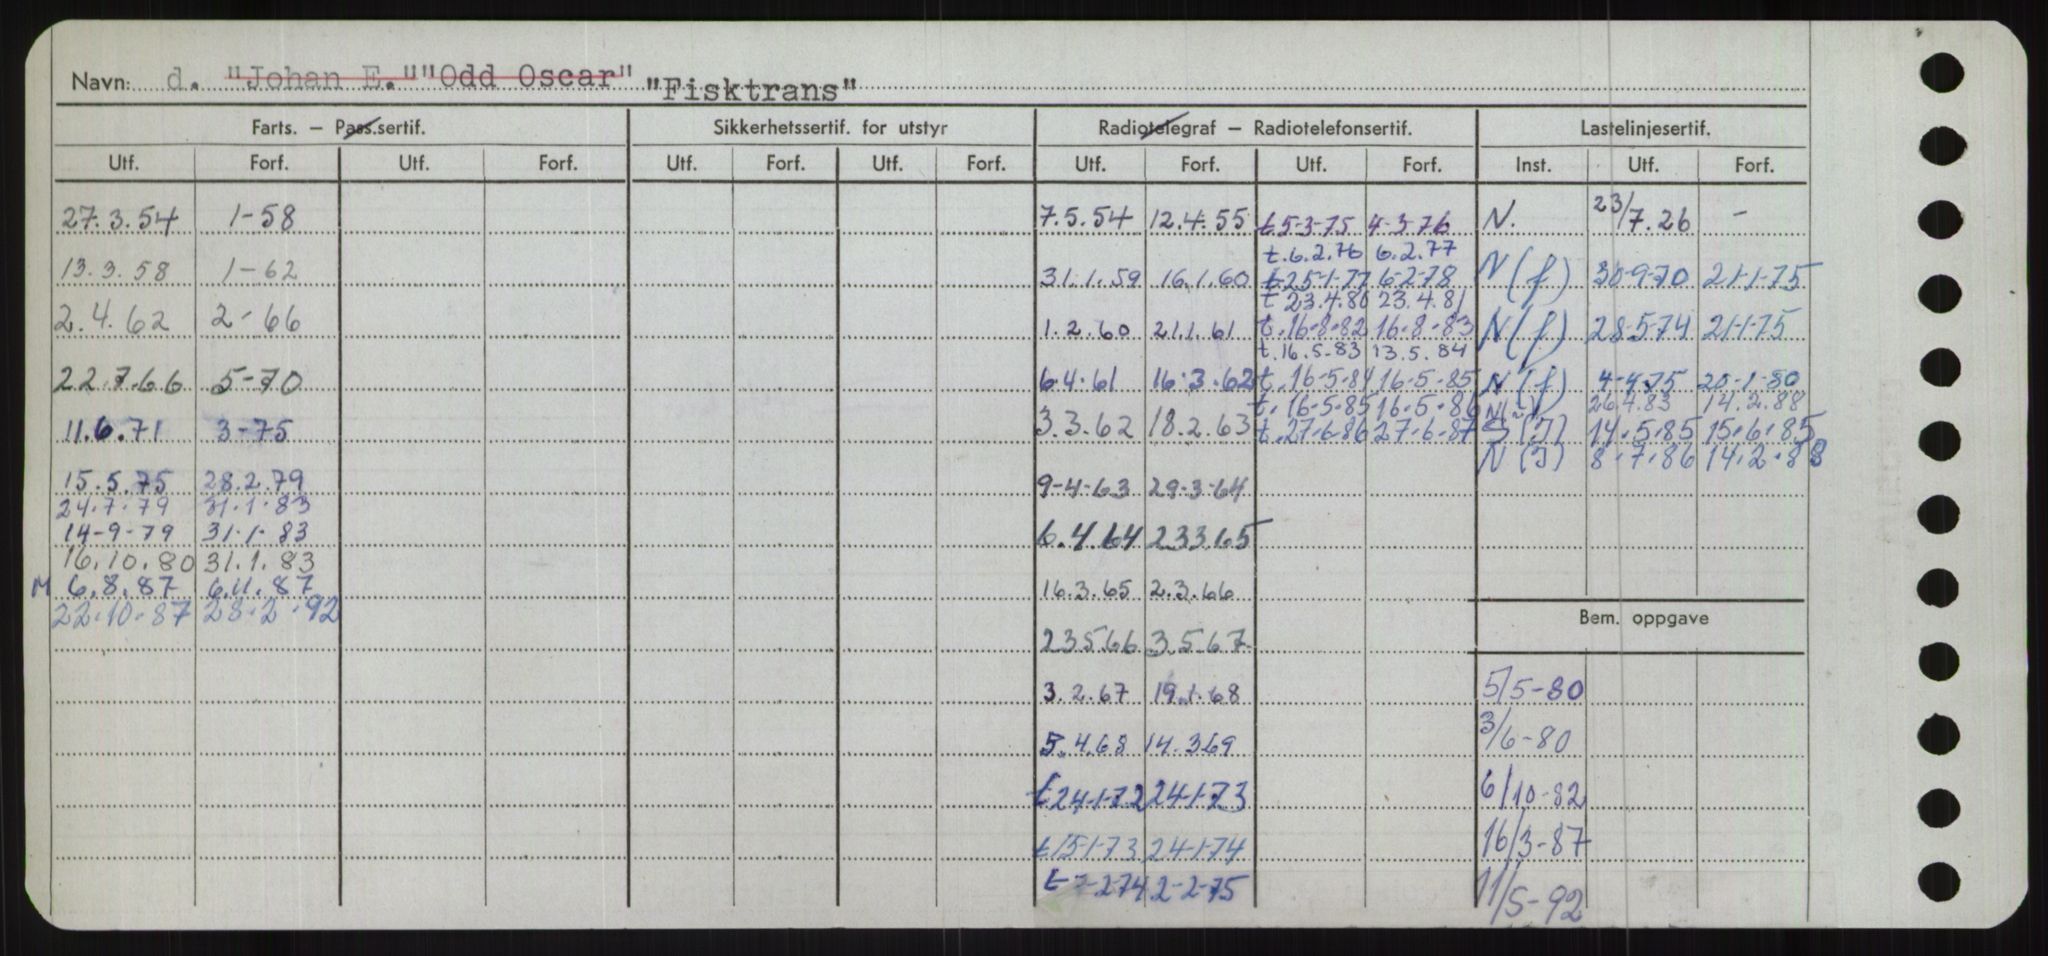 Navn: d. "Johan E." "Odd Oscar" "Fisktrans"
Farts. – Pass.sertif. Sikkerhetssertif. for utstyr Radiotelegraf – Radiotelefonsertif. Lastelinjesertif.
Utf. Forf. Utf. Forf. Utf. Forf. Utf. Forf. Utf. Forf. Utf. Forf. Inst. Utf. Forf.
27.3.54 1-58 7.5.54 12.4.55 t 5-3-75 4-3-76 N. 23/7.26 -
t.6.2.76 6.2.77
13.3.58 1-62 31.1.59 16.1.60 t 25-1-77 6-2-78 N(f) 30-9-70 21-1-75
t 23.4.80 23.4.81
2.4.62 2-66 1.2.60 21.1.61 t.16-8-82 16-8-83 N(f) 28-5-74 21-1-75
t.16.5-83 13.5.84
22.7.66 5-70 6.4.61 16.3.62 t.16-5-84 16-5-85 N(f) 4-4-75 20-1-80
t.16-5-85 16-5-86 26.4.83 14.2.88
11.6.71 3-75 3.3.62 18.2.63 t.27-6-86 27-6-87 S(I) 14.5.85 15.6.85
N(I) 8.7.86 14.2.88
15.5.75 28.2.79 9-4-63 29-3-64
24.7.79 31.1.83
14-9-79 31.1.83 6.4.64 23.3.65
16.10.80 31.1.83
M 6.8.87 6.11.87 16.3.65 2.3.66
22.10.87 28.2.92 Bem. oppgave
23.5.66 3.5.67
3.2.67 19.1.68 5/5-80
5.4.68 14.3.69 3/6-80
t 24-1-72 24-1-73 6/10-82
t 15-1-73 24-1-74 16/3-87
t 7-2-74 2-2-75 11/5-92